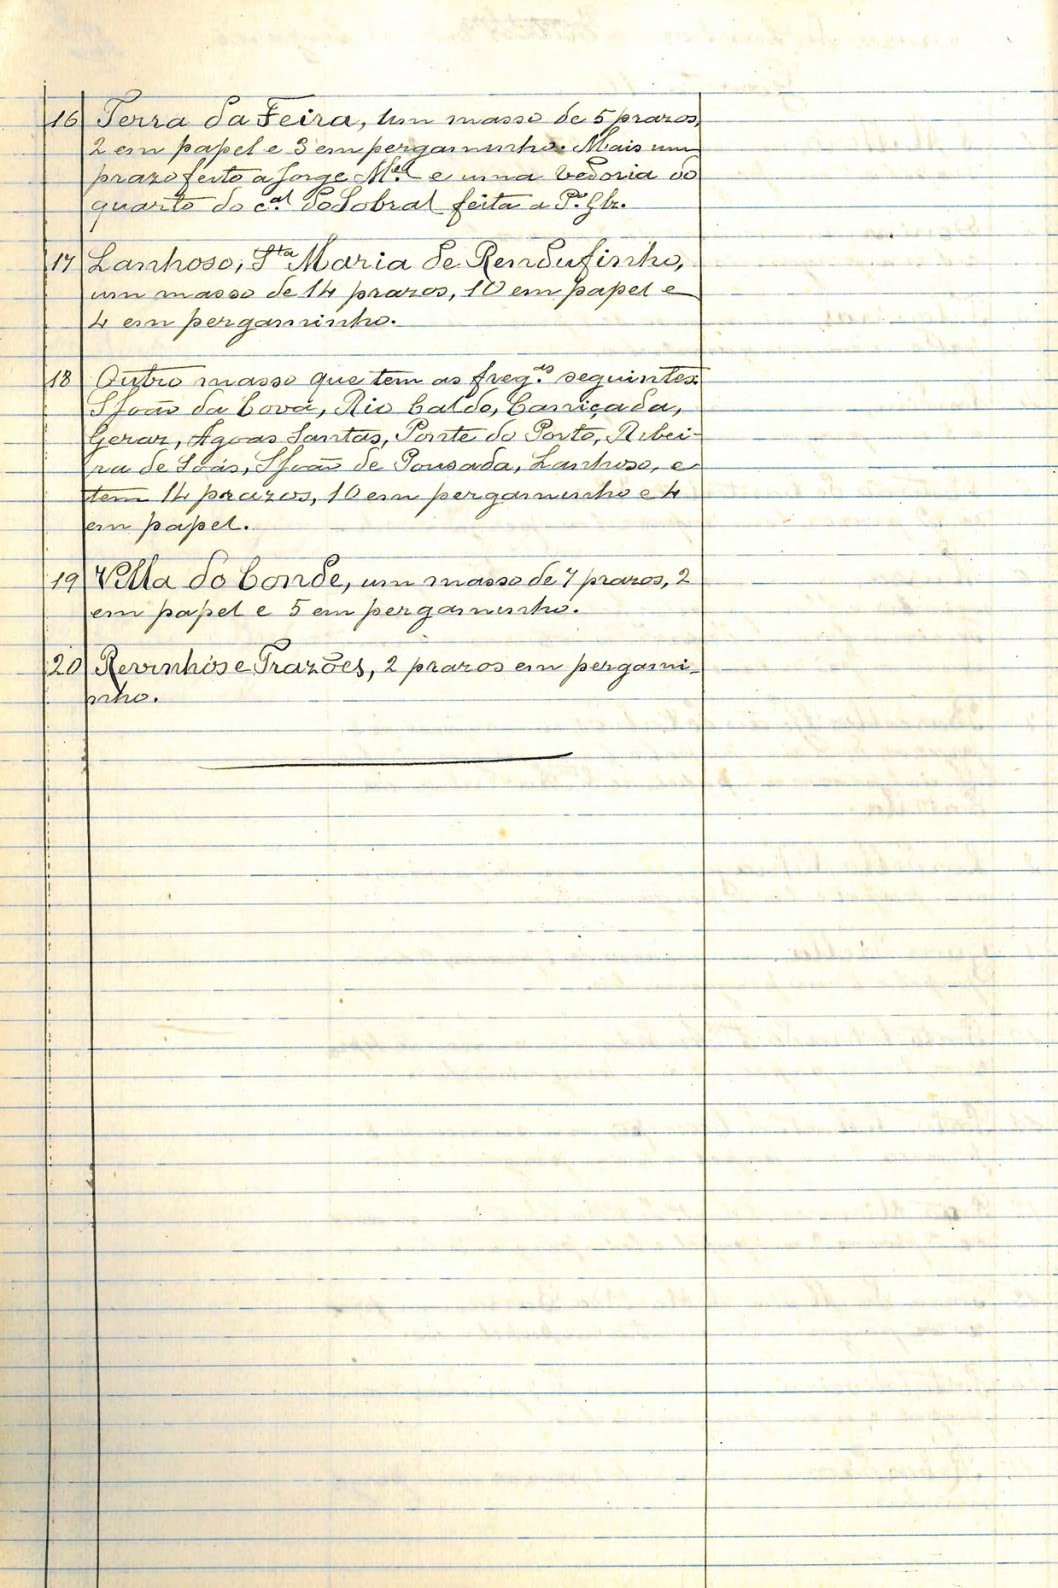 16 Terra da Feira, um masso de 5 prazos,
2 em papel e 3 em pergaminho. Mais um
prazo feito a Jorge M.el e uma vedoria do
quarto do c.al do Sobral feita a P.o Glz.
17 Lanhoso, S.ta Maria de Rendufinho,
um masso de 14 prazos, 10 em papel e
4 em pergaminho.
18 Outro masso que tem as freg.as seguintes:
S João da Cova, Rio Caldo, Caniçada,
Geraz, Agoas Santas, Ponte do Porto, Ribei-
ra de Soás, S João de Pousada, Lanhoso, e
tem 14 prazos, 10 em pergaminho e 4
em papel.
19 Villa do Conde, um masso de 7 prazos, 2
em papel e 5 em pergaminho.
20 Revinhós e Trazões, 2 prazos em pergami-
nho.